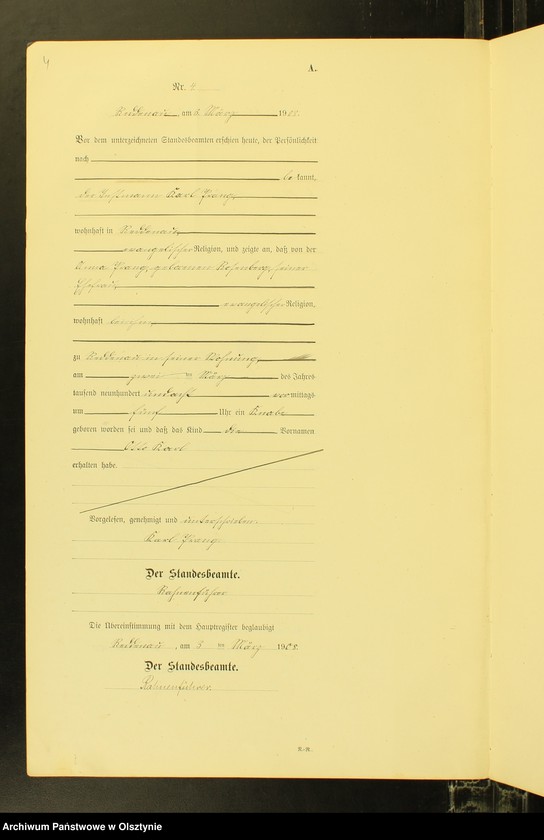 4
A.
Nr.
Reddenau, am März 19
Vor dem unterzeichneten Standesbeamten erschien heute, der Persönlichkeit
nach
be kannt,
der Karl Prang
wohnhaft in Reddenau
evangelischer Religion, und zeigte an, daß von der
Anna Prang, geborenen Rosenberg, seiner
Ehefrau
evangelischer Religion,
wohnhaft
zu Reddenau in seiner Wohnung
am zwei ten März des Jahres
tausend neunhundert und acht vor mittags
um fünf Uhr ein Knabe
geboren worden sei und daß das Kind die Vornamen
Otto Karl
erhalten habe.
Vorgelesen, genehmigt und unterschrieben
Karl Prang
Der Standesbeamte.
Die Übereinstimmung mit dem Hauptregister beglaubigt
Reddenau, am ten März 1908.
Der Standesbeamte.
Archiwum Państwowe w Olsztynie